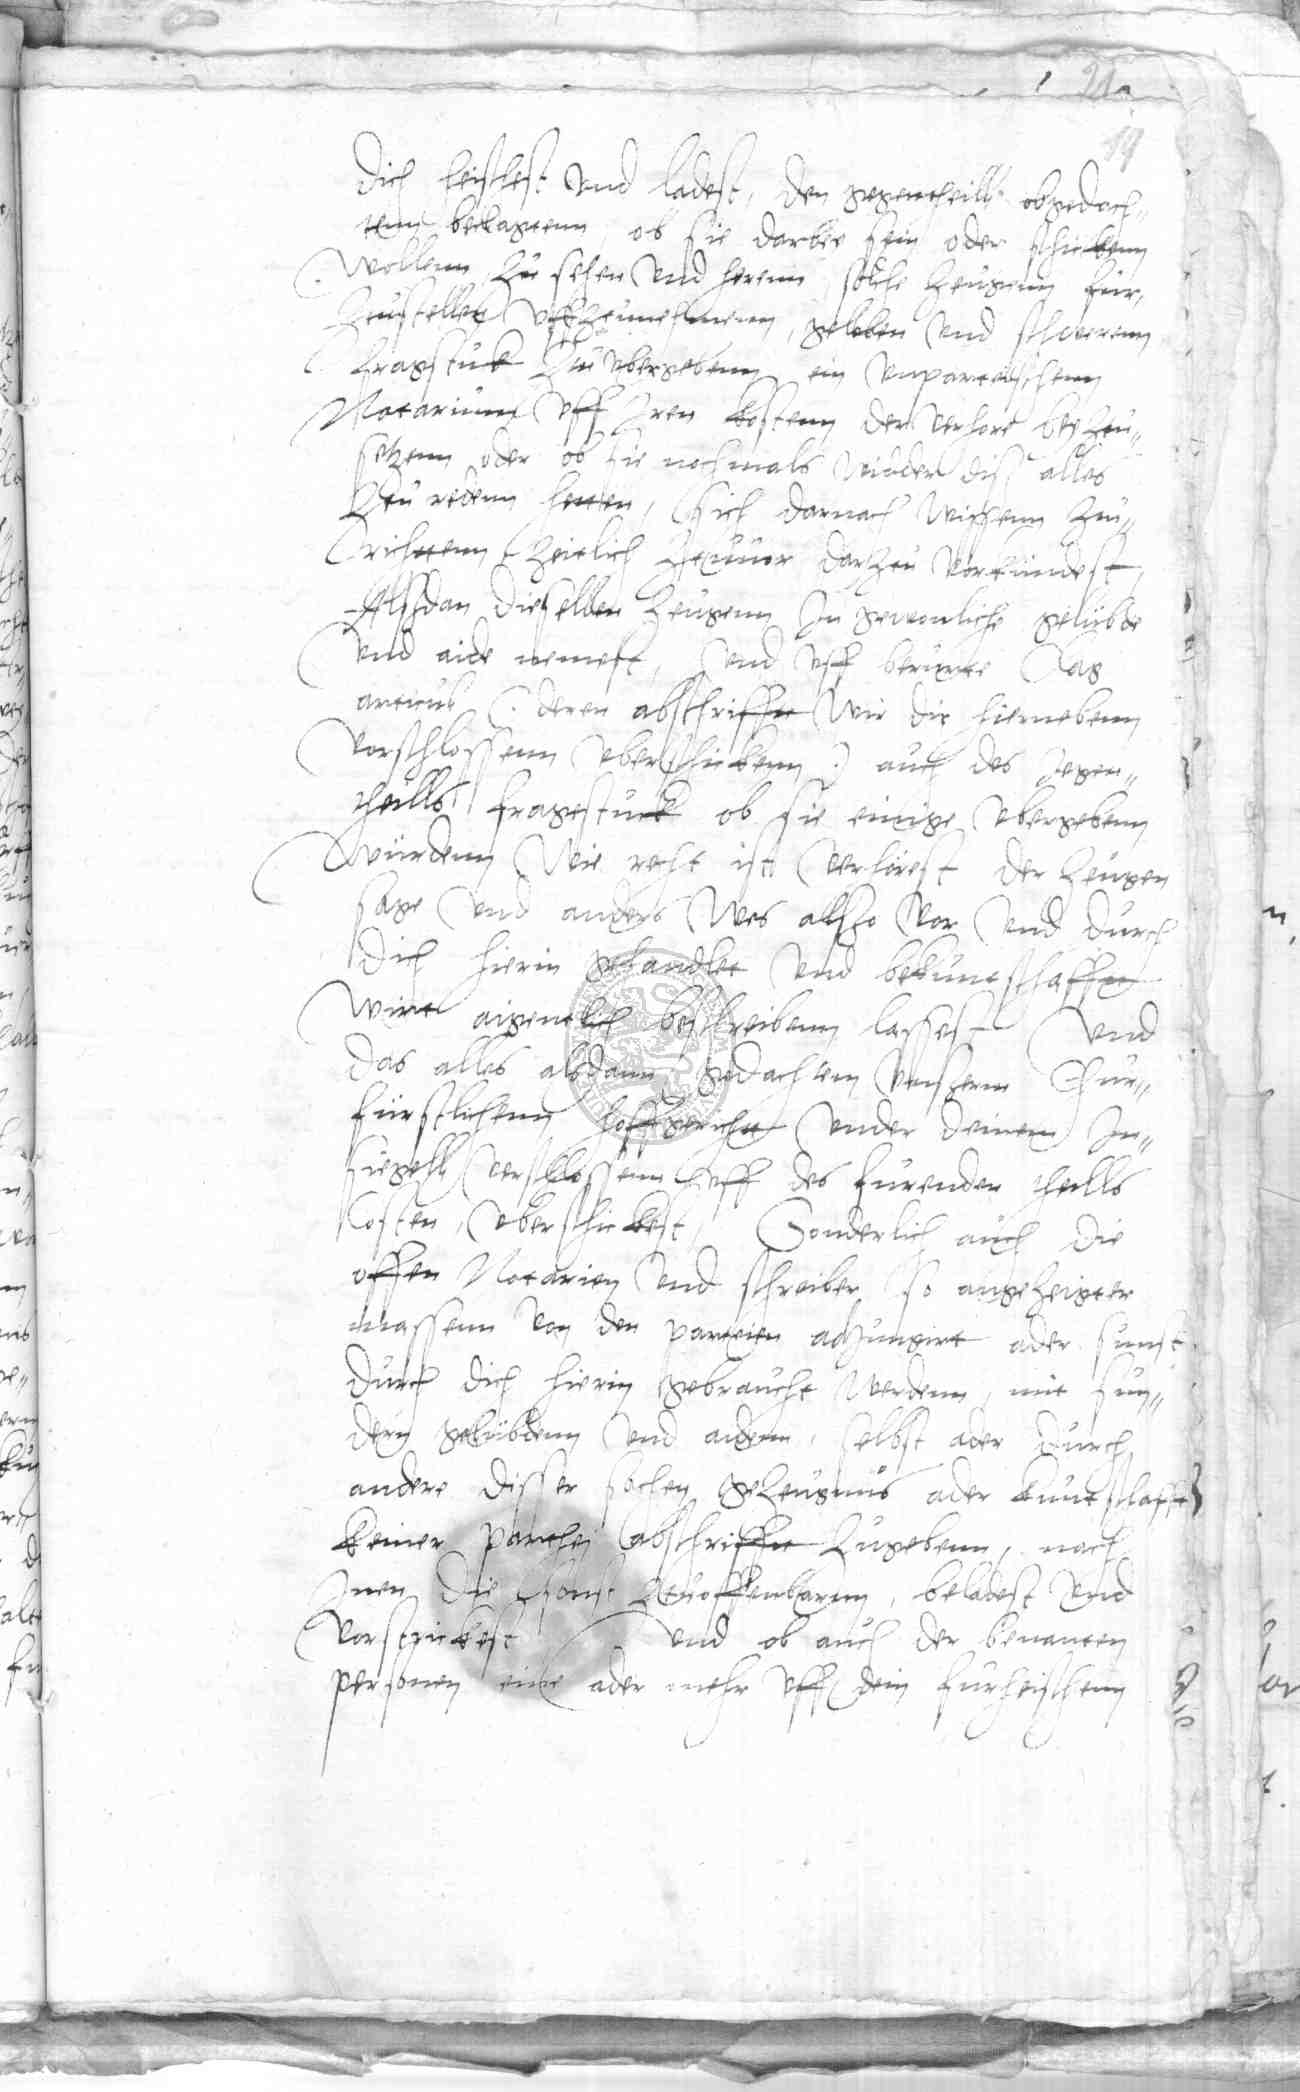 21
19
dich heischest vnd ladest, den gegentheill obgedach„
tem beclagtenn, ob sie darbei sein oder schickenn
wollenn, zu sehen vnd herenn, solche zeugenn fur„
zeustellen vffzeunehmenn, geloben vnd schwerenn
fragstuck zeu vbergebenn, ein vnparteischenn
Notarium vff Jren kostenn der verhore bey zeu„
setzenn, oder ob sie nochmals widder diss alles
zeu redenn hetten, sich darnach wissenn zeu„
richttenn, zeitlich zeuuor darzeu vorkundest,
Alssdan dieselben zeugenn Jn gewonliche gelubde
vnd aide nemest, vnd vff berurte clag
articul (: deren abschrifft wir dir hiernebenn
vorschlossenn vberschickenn :) auch des gegen„
theills fragestuck ob sie einige vbergebenn
wurdenn wie recht ist verhörest, der zeugen
sage vnd anders wes allso vor vnd durch
dich hierin gehandlet vnd bekuntschafft
wirt aigentlich beschreibenn lassest, vnd
das alles alsdann gedachtem vnserm Chur„
furstlichenn hoffgericht vnder deinem Jn„
siegell verschlossenn vff des furenden theills
Costen, vberschickest, Sonderlich auch die
offen Notarien vnd schreiber so angezeigter
massenn von den parteien adjungirt ader sunst
durch dich hierin gebraucht werdenn, mit sun„
dern gelubdenn vnd aidenn, selbst ader durch
andere disser sachen gezeugnus ader kuntschafft
keiner parthej abschrifft zugebenn, noch
Jnen die sonst zeuoffenbarnn, beladest vnd
vorstrickest, vnd ob auch der benanten
personen eine ader mehr vff dein furheischenn